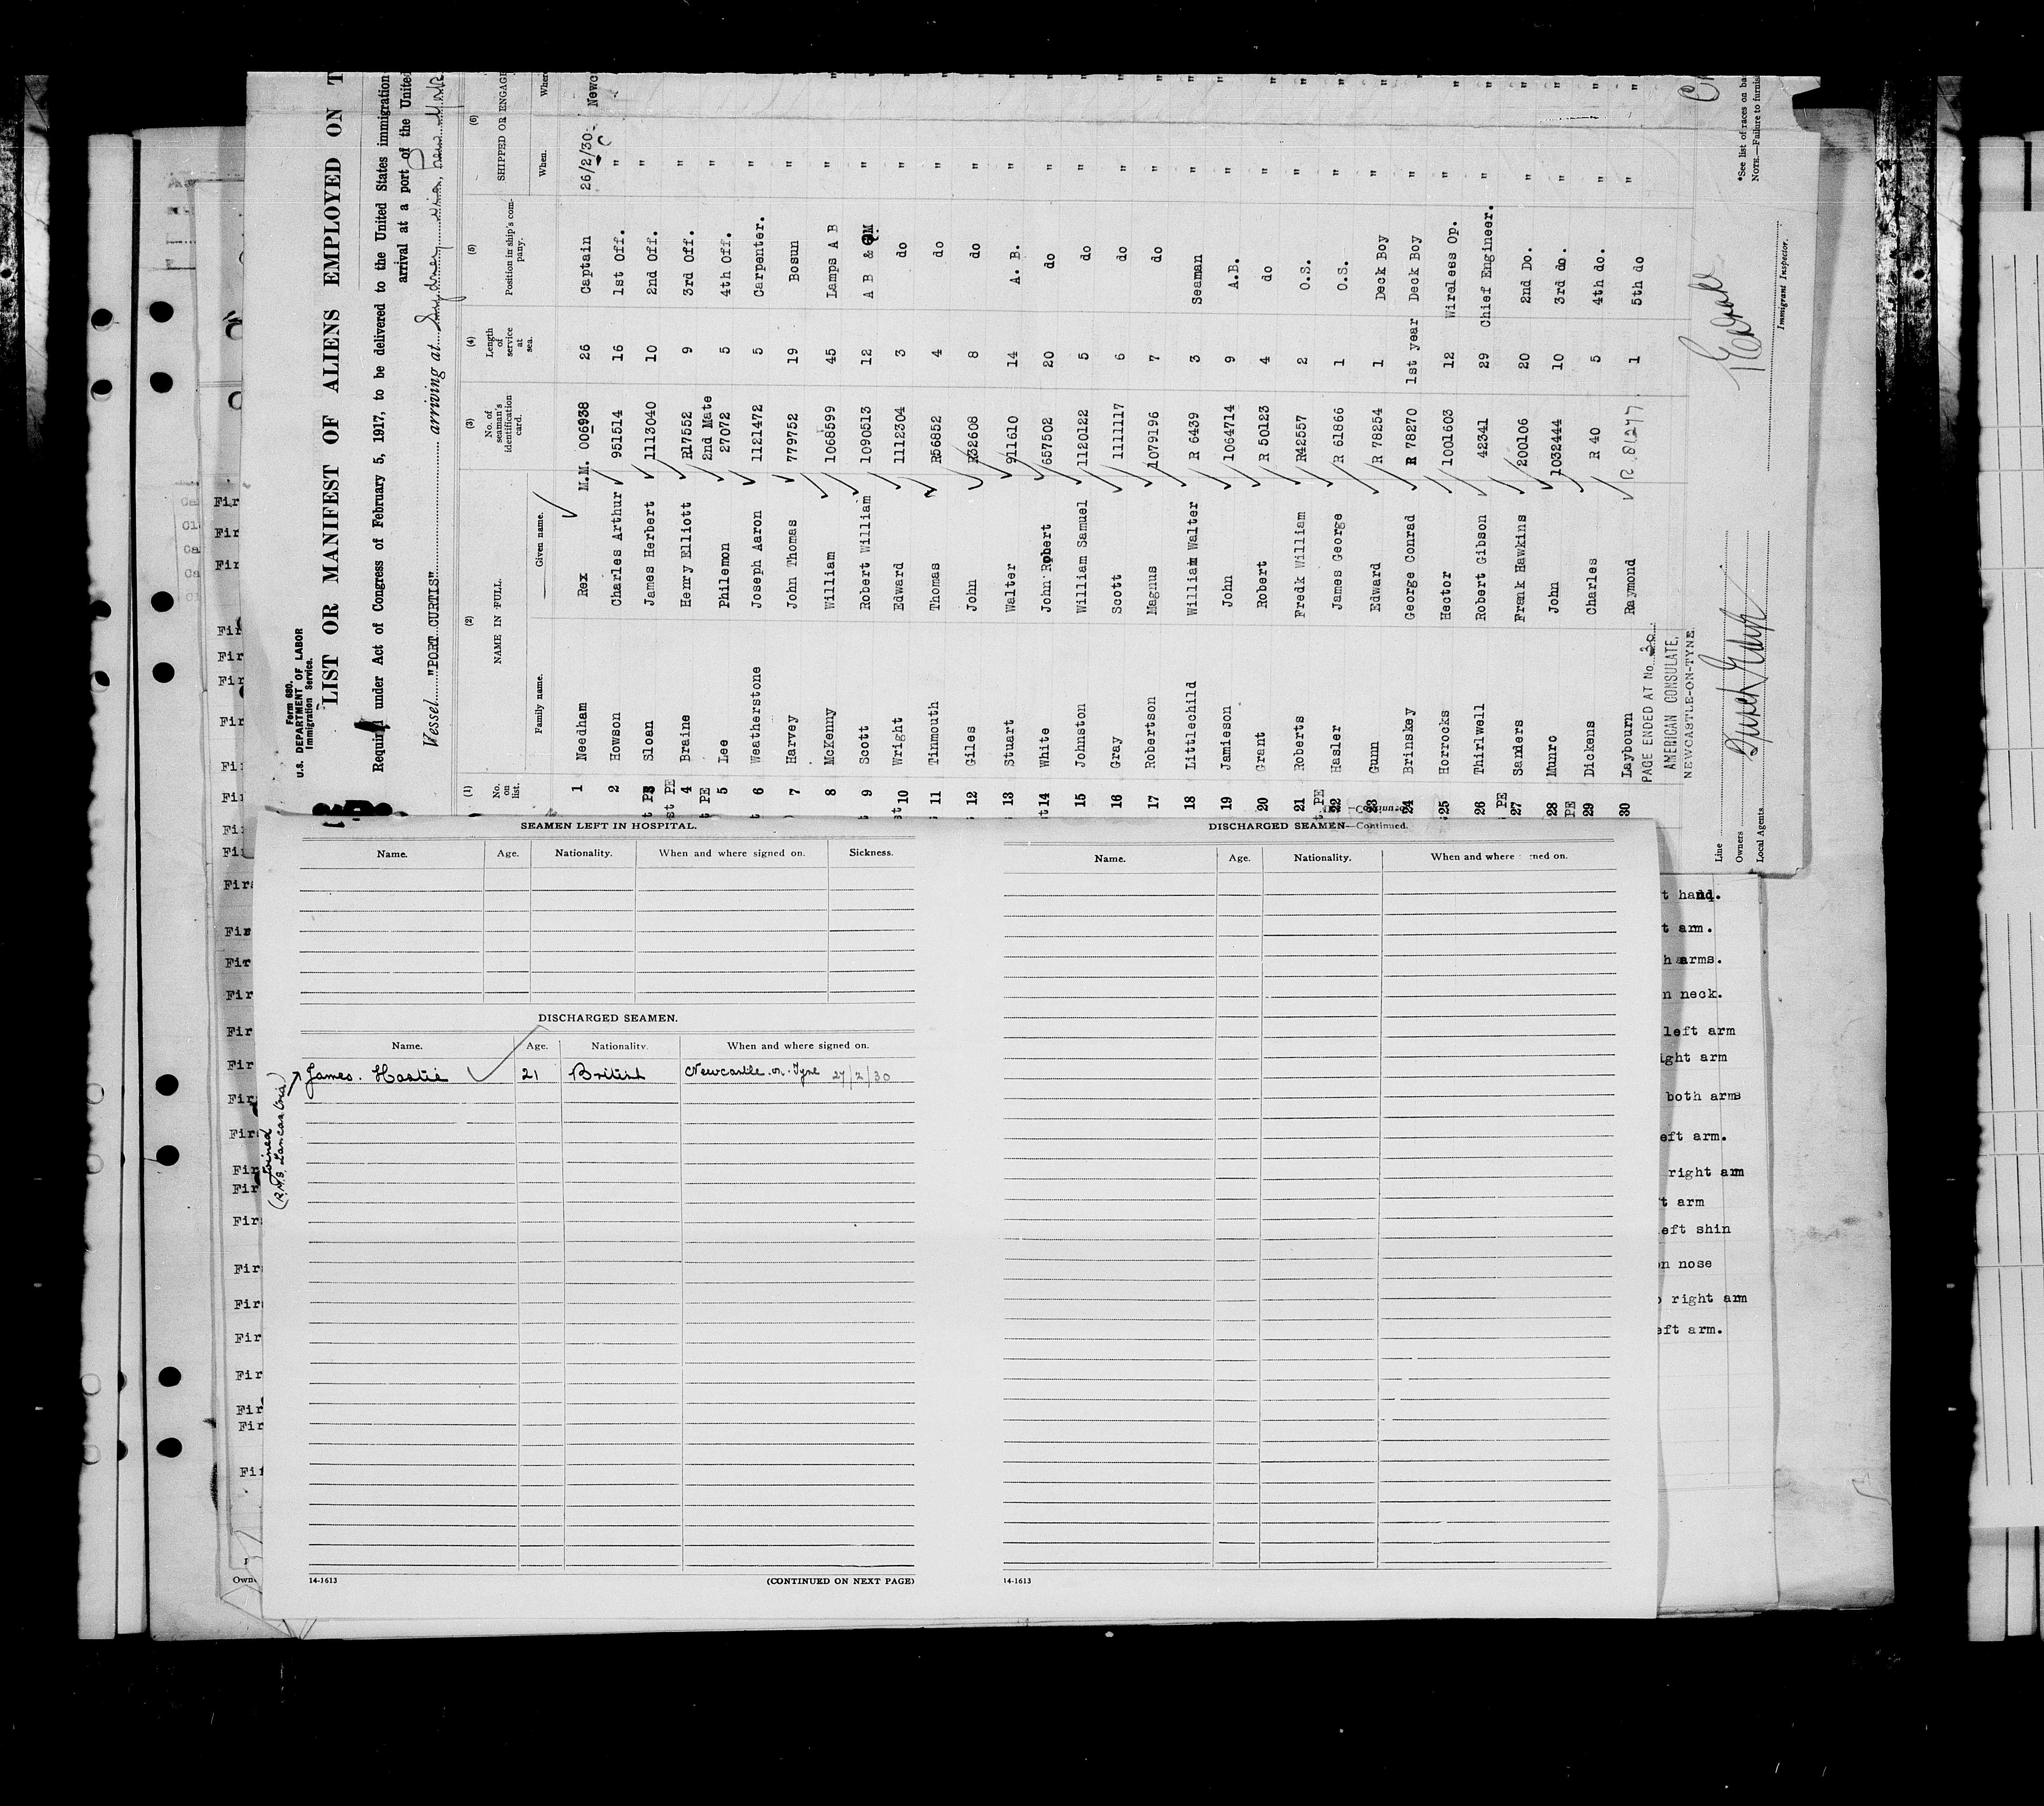 Form 680.
U.S. DEPARTMENT OF LABOR
Immigration Service.
LIST OR MANIFEST OF ALIENS EMPLOYED ON T
under Act of Congress of February 5, 1917, to be delivered to the United States immigration
arrival at a port of the United
Vessel "PORT CURTIS" arriving at
(1) (2) (3) (4) (5) (6)
No. on list. NAME IN FULL. No. of seaman's identification card. Length of service at sea. Position in ship's company. SHIPPED OR ENGAGE
Family name. Given name. When. Where
1 Needham Rex M.M. 006938 26 Captain 26/2/30 Newc
2 Howson Charles Arthur 951514 16 1st Off. " "
3 Sloan James Herbert 1113040 10 2nd Off. "
4 Braine Henry Elliott R17552 9 3rd Off. " "
2nd Mate
5 Lee Philemon 27072 5 4th Off. " "
6 Weatherstone Joseph Aaron 1121472 5 Carpenter. " "
7 Harvey John Thomas 779752 19 Bosun " "
8 McKenny William 1068599 45 Lamps A B " "
9 Scott Robert William 1090513 12 A B & QM " "
10 Wright Edward 1112304 3 do " "
11 Tinmouth Thomas R56852 4 do " "
12 Giles John R32608 8 do " "
13 Stuart Walter 911610 14 A. B. " "
14 White John Robert 657502 20 do " "
15 Johnston William Samuel 1120122 5 do " "
16 Gray Scott 1111117 6 do " "
17 Robertson Magnus 1079196 7 do " "
18 Littlechild William Walter R 6439 3 Seaman " "
19 Jamieson John 1064714 9 A.B. " "
20 Grant Robert R 50123 4 do " "
21 Roberts Fredk William R42557 2 O.S. " "
22 Hasler James George R 61866 1 O.S. " "
23 Gunn Edward R 78254 1 Deck Boy " "
24 Brinskey George Conrad R 78270 1st year Deck Boy " "
25 Horrocks Hector 1001603 12 Wireless Op. " "
26 Thirlwell Robert Gibson 42341 29 Chief Engineer. " "
27 Sanders Frank Hawkins 200106 20 2nd Do. " "
28 Munro John 1032444 10 3rd do. " "
29 Dickens Charles R 40 5 4th do. " "
30 Laybourn Raymond R 81277 1 5th do " "
PAGE ENDED AT No. 30
AMERICAN CONSULATE,
NEWCASTLE-ON-TYNE.
Line
Owners
Local Agents
Immigrant Inspector.
*See list of races on ba
NOTE.—Failure to furnis
SEAMEN LEFT IN HOSPITAL.
Name. Age. Nationality. When and where signed on. Sickness.
DISCHARGED SEAMEN.
Name. Age. Nationality. When and where signed on.
James. Hastie 21 British Newcastle on Tyne 27/2/30
Joined
(R.M.S. Lancastria)
14-1613 (CONTINUED ON NEXT PAGE)
DISCHARGED SEAMEN—Continued.
Name. Age. Nationality. When and where ned on.
14-1613
t hand.
t arm.
h arms.
n neck.
left arm
ight arm
both arms
eft arm.
right arm
t arm
eft shin
on nose
right arm
eft arm.